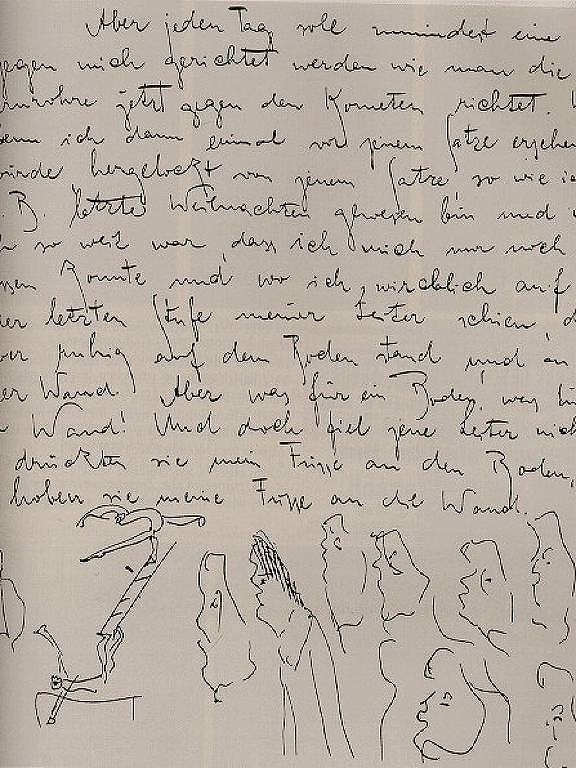 Aber jeden Tag soll mindest eine
gegen mich gerichtet werden wie man die
rnrohre jetzt gegen den Kometen richtet.
enn ich dann einmal vor jenem Satze erschei
ürde hergelockt von jenem Satze so wie ic
. B. letzte Weihnachten gewesen bin und
h so weit war, dass ich mich nur noch
sen konnte und wo ich wirklich auf
er letzten Stufe meiner Leiter schien, d
er ruhig auf dem Boden stand und an
er Wand. Aber was für ein Boden, was fü
Wand! Und doch fiel jene Leiter nich
drückten sie mein Füsse an den Boden,
hoben sie meine Füsse an die Wand.